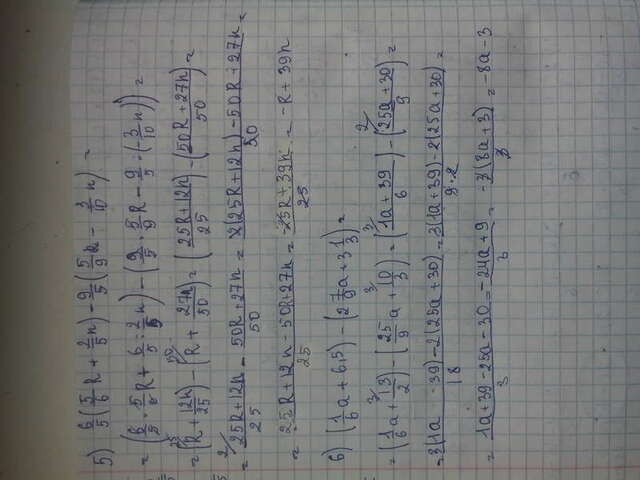 5) 6/5(5/6 k + 2/5 n) - 9/5(5/9 k - 3/10 n) =
= (6/5 · 5/6 k + 6/5 · 2/5 n) - (9/5 · 5/9 k - 9/5 · (3/10 n)) =
= (k + 12n/25) - (k + 27n/50) = (25k + 12n / 25) - (50k + 27n / 50) =
= 25k + 12n / 25 - 50k + 27n / 50 = 2(25k + 12n) - 50k + 27n / 50 =
= 25k + 12n - 50k + 27n / 25 = -25k + 39n / 25 = -k + 39n
6) (1/6 a + 6,5) - (2 7/9 a + 3 1/3) =
= (1/6 a + 13/2) - (25/9 a + 10/3) = (1a + 39 / 6) - (25a + 30 / 9) =
= 3(1a 39) - 2(25a + 30) / 18 = 3(1a + 39) - 2(25a + 30) / 9·2 =
= 1a + 39 - 25a - 30 / 3 = -24a + 9 / 3 = -3(8a + 3) / 3 = -8a - 3